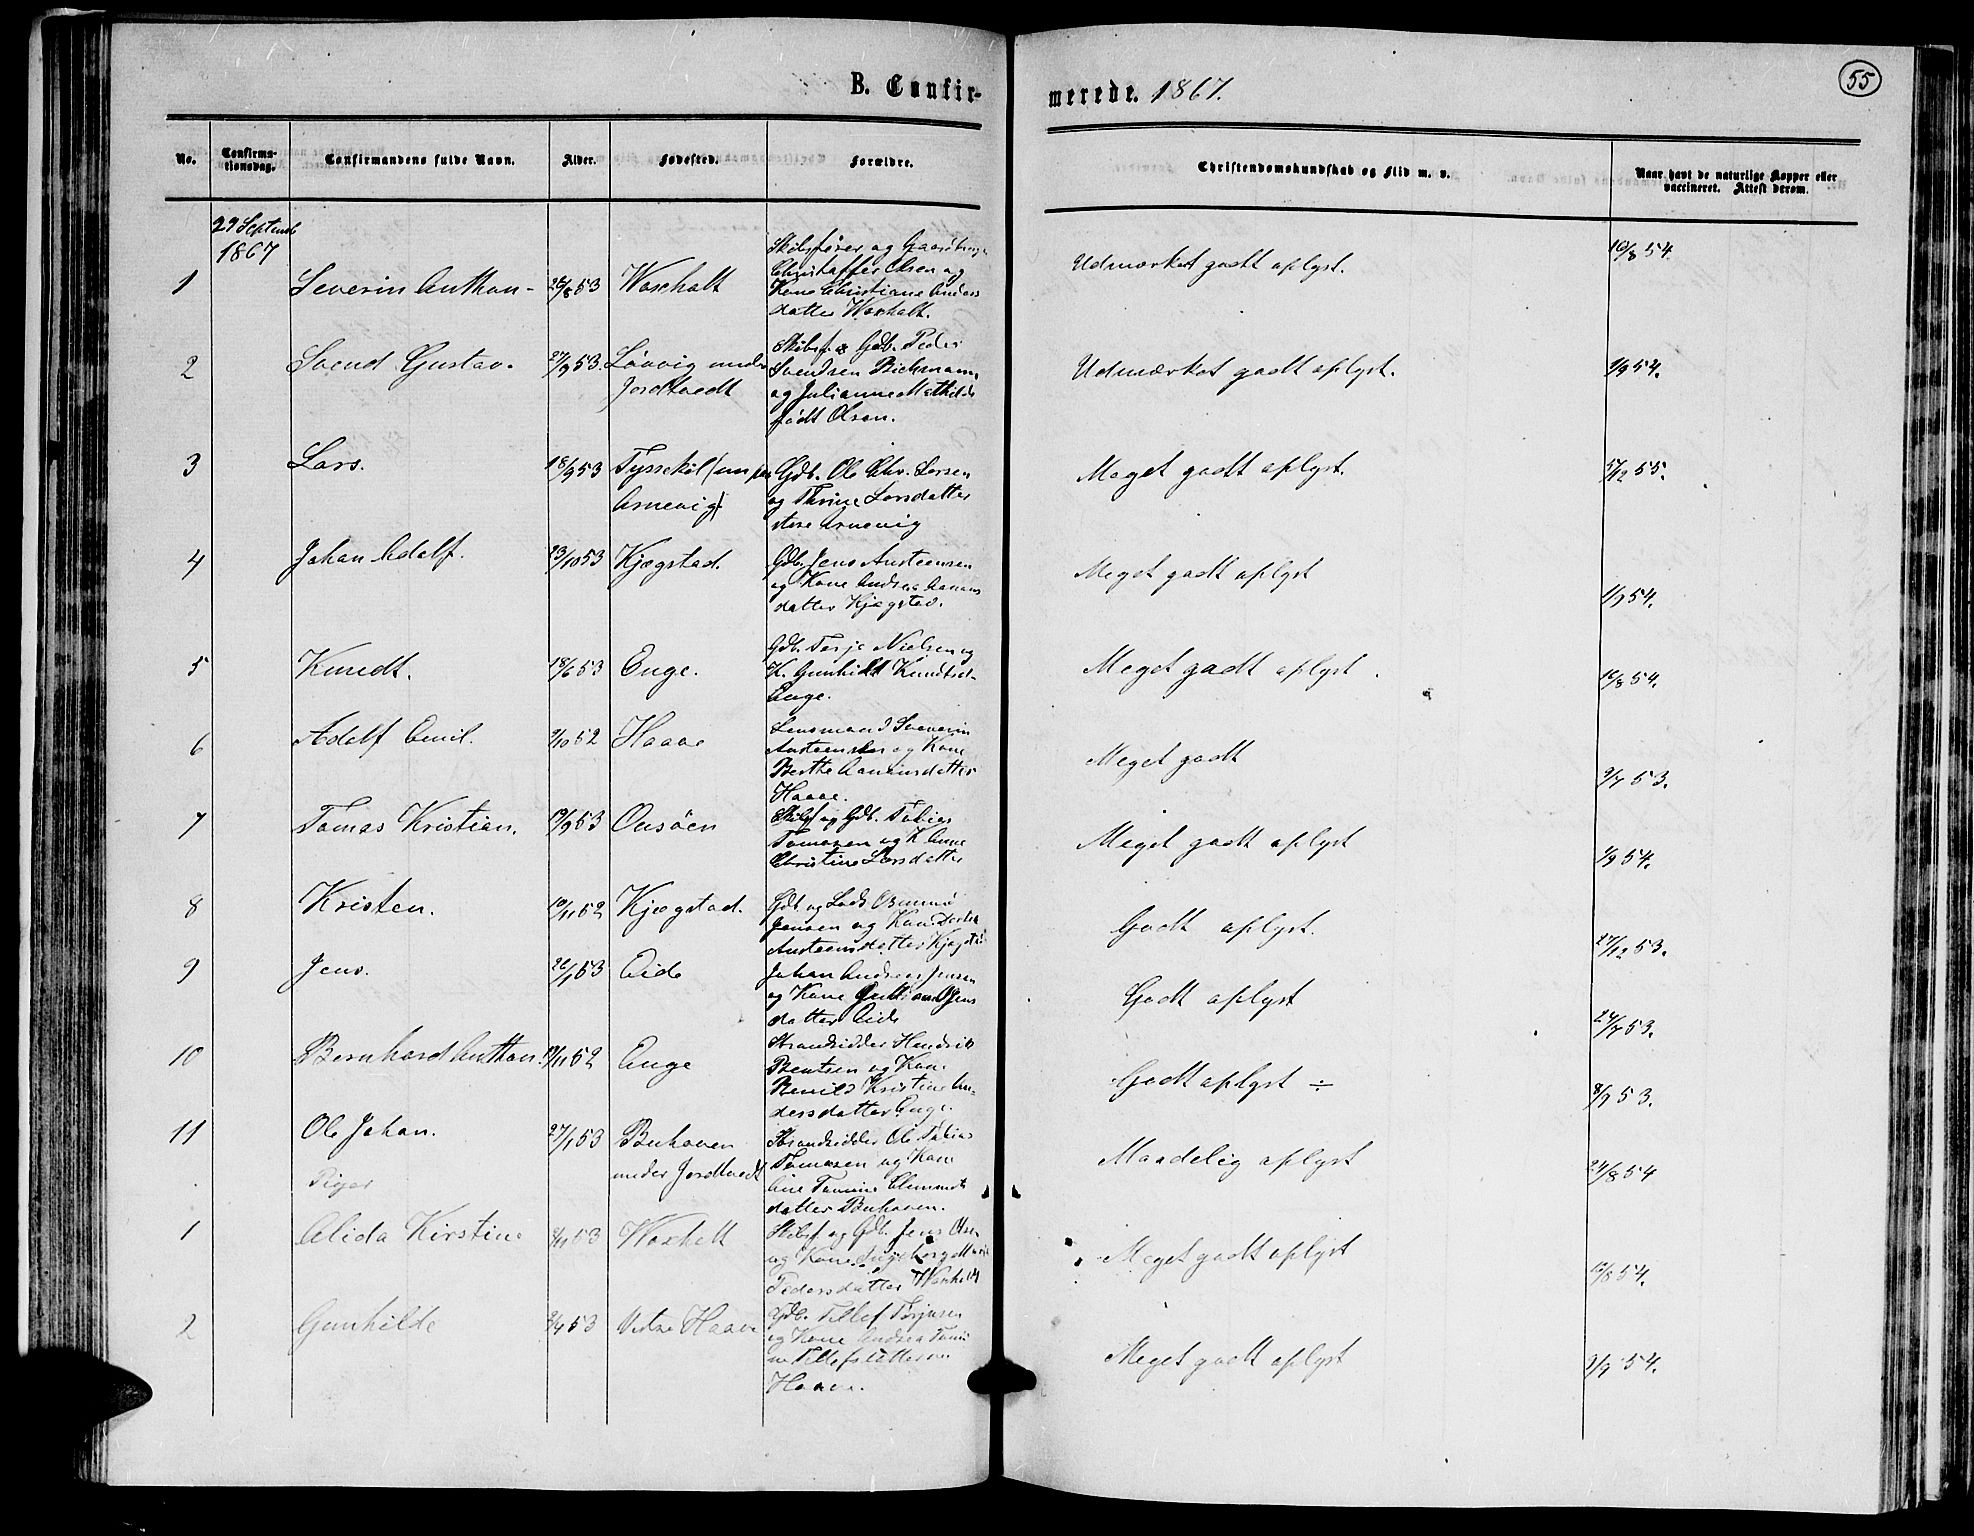 B. Confirmerede. 1867.
55
No.
Confirmationsdag.
Confirmandens fulde Navn.
Alder.
Fødested.
Forældre.
Christendomskundskab og Flid m. v.
Naar havt de naturlige Kopper eller vaccineret. Attest derom.
29 Septemb
1867
1 Severin Anthon- 26/8 53 Woxholt
Skibsfører og Gaardbruger
Christoffer Olsen og
Kone Christiane Anders
datter Woxholt.
Udmærket godt oplyst. 16/8 54.
2 Svend Gustav. 27/9 53. Lövvig under
Jordtvedt
Skibsf. & Gdb. Peder
Svendsen Bichmann
og Julianne Mathilde
født Olsen.
Udmærket godt oplyst. 1/9 54.
3 Lars. 18/9 53
Arnevig)
Gdb. Ole Chr. Larsen
og Thrine Larsdatter
store Arnevig
Meget godt oplyst. 5/12 55.
4 Johan Adolf. 23/10 53 Kjægstad.
Gdb. Jens Austeensen
og Kone Andrea Aanons
datter Kjægstad.
Meget godt oplyst 1/9 54.
5 Knudt. 18/6 53 Enge.
Gdb. Terje Nielsen og
K. Gunhild Knudtsd-
Enge.
Meget godt oplyst. 16/8 54.
6 Adolf Emil. 9/10 52 Haave
Lensmand Severin
Austeensen og Kone
Berthe Aanensdatter
Haave.
Meget godt 9/7 53.
7 Tomas Kristian. 19/9 53 Onsöen
Skibsf og Gdb. Tobias
Tomasen og K Anne
Christine Larsdatter
Meget godt oplyst 1/9 54.
8 Kristen. 10/11 52 Kjægstad.
Gdb og Lods Osmund
Jensen og Kone Dorthea
Austeensdatter Kjægstad
Godt oplyst. 27/12 53.
9 Jens. 26/1 53 Eide
Johan Andreas Jensen
og Kone Jens
datter Eide
Godt oplyst 24/7 53.
10 Bernhard Anthon. 19/11 52 Enge
Strandsidder Hendrik
Bentsen og Kone
Kristine An-
dersdatter Enge.
Godt oplyst ÷ 8/9 53.
11 Ole Johan. 27/1 53 Buhaven
under Jordtvedt
Strandsidder Ole Tobias
Tomasen og Kone
Tomine Clements
datter Buhaven.
Maadelig oplyst 24/8 54
Piger
1 Alida Kirstine 9/11 53 Woxholt
Skibsf og Gdb. Jens Olsen
og Kone Ingeborg Marie
Pedersdatter Woxholt
Meget godt oplyst 16/8 54.
2 Gunhilde 9/4 53 Vestre Haave
Gdb. Tellef Terjusen
og Kone Andrea Tomi
ne Tellefsdatter
Haave.
Meget godt oplyst 1/9 54.